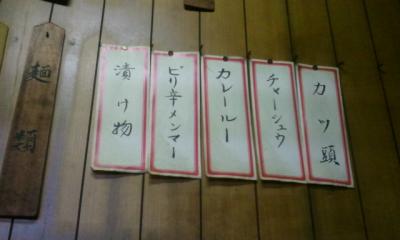 カツ頭
チャーシュウ
カレールー
ピリ辛メンマー
漬け物
麺類